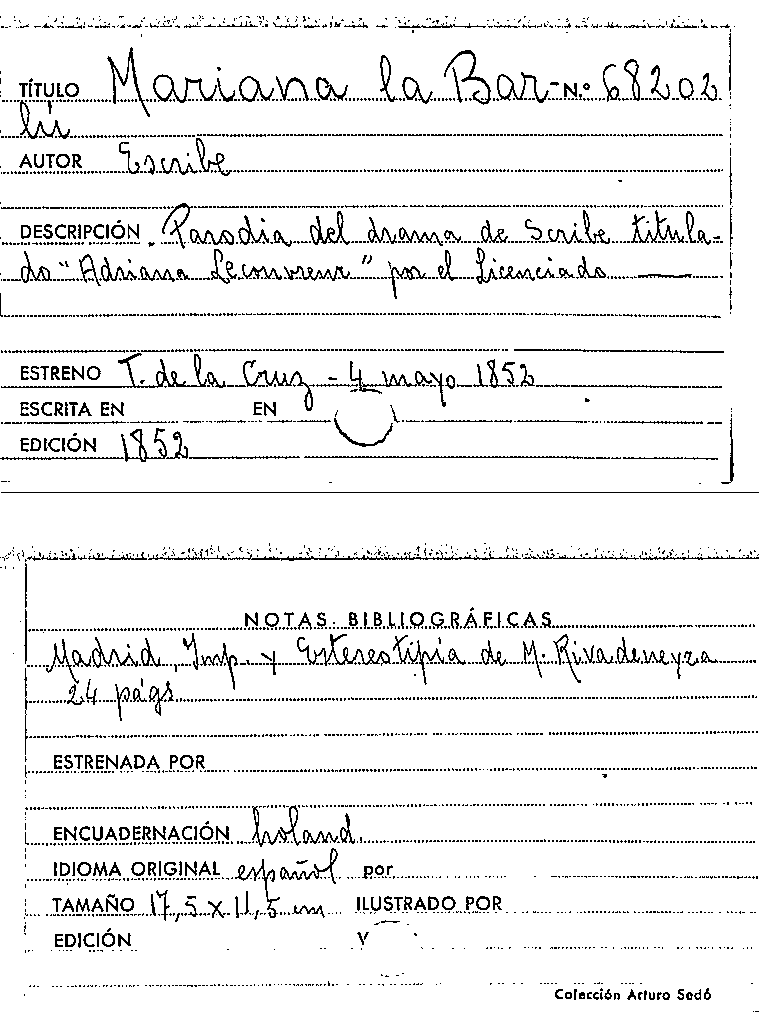 TÍTULO Mariana la Bar- N.º 68202
lú
AUTOR Escribe
DESCRIPCIÓN. Parodia del drama de Scribe titula-
do "Adriana Lecouvreur" por el Licenciado ——
ESTRENO T. de la Cruz - 4 mayo 1852
ESCRITA EN EN
EDICIÓN 1852
NOTAS BIBLIOGRÁFICAS
Madrid, Imp. y Estereotipia de M. Rivadeneyra
24 págs.
ESTRENADA POR
ENCUADERNACIÓN holand.
IDIOMA ORIGINAL español por
TAMAÑO 17,5 x 11,5 cm ILUSTRADO POR
EDICIÓN V
Colección Arturo Sedó